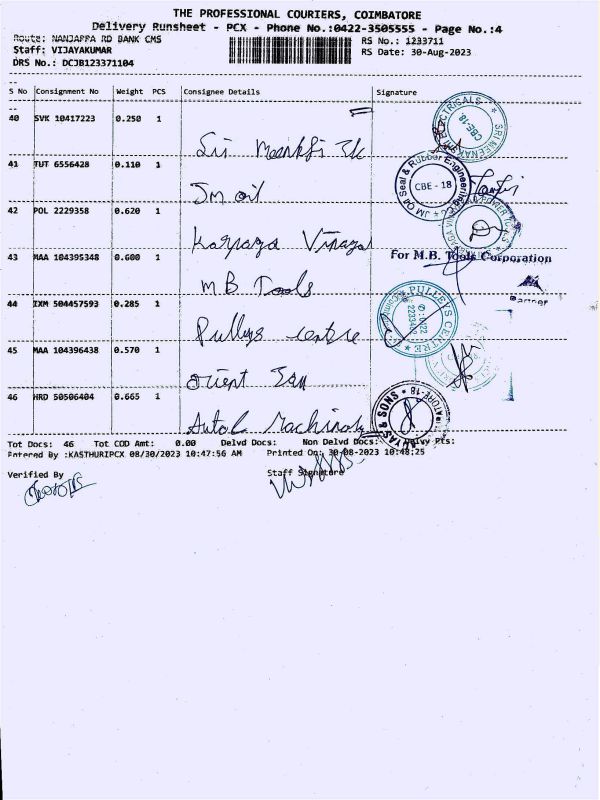 THE PROFESSIONAL COURIERS, COIMBATORE
Delivery Runsheet - PCX - Phone No.:0422-3505555 - Page No.:4
Route: NANJAPPA RD BANK CMS
RS No.: 1233711
Staff: VIJAYAKUMAR
RS Date: 30-Aug-2023
DRS No.: DCJB123371104
S No Consignment No Weight PCS Consignee Details Signature
40 SVK 10417223 0.250 1
Sri Meenkfi
SRI MEENAK ELECTRICALS CBE-18
41 TUT 6556428 0.110 1
JM oil
JM Oil Seal & Rubber Engineering CBE - 18
42 POL 2229358 0.620 1
Karpaga Vinayal
POWER TOOLS
43 MAA 104395348 0.600 1
For M.B. Tools Corporation
MB Tools
44 IXM 504457593 0.285 1
Pullys centre
PULLEYS CENTRE
45 MAA 104396438 0.570 1
orient
46 HRD 50506404 0.665 1
& SONS
Tot Docs: 46 Tot COD Amt: 0.00 Delvd Docs: Non Delvd Docs:
Entered By :KASTHURIPCX 08/30/2023 10:47:56 AM Printed On: 30-08-2023 10:48:25
Verified By Staff Signature